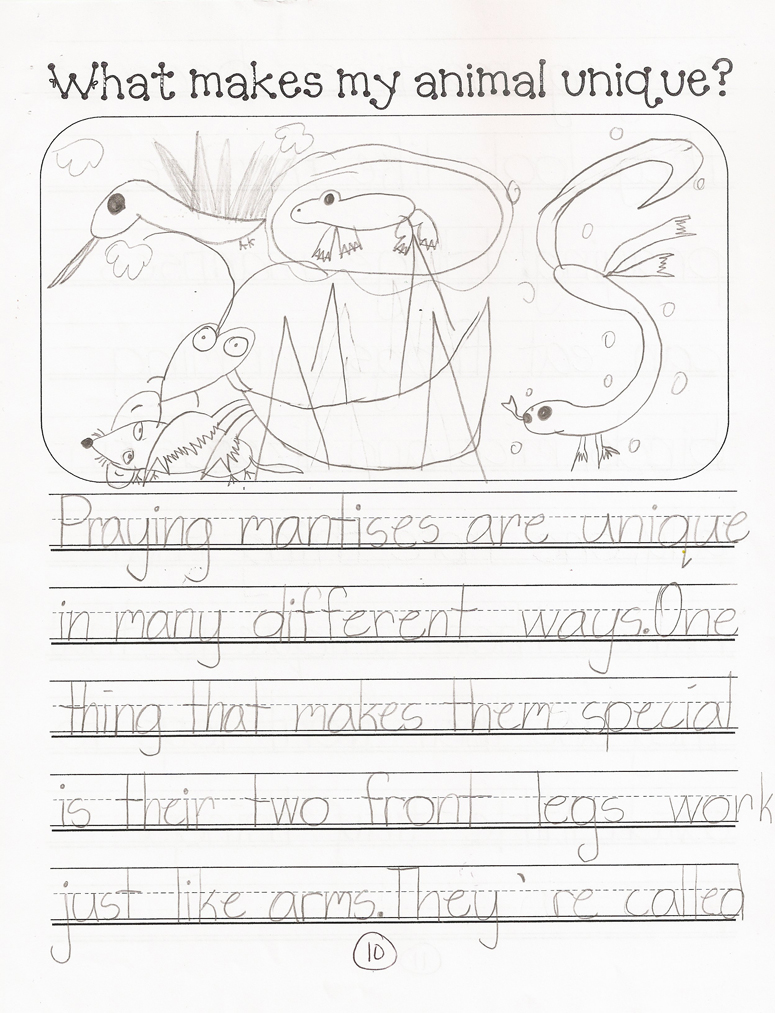 What makes my animal unique?
Praying mantises are unique
in many different ways. One
thing that makes them special
is their two front legs work
just like arms. They're called
10